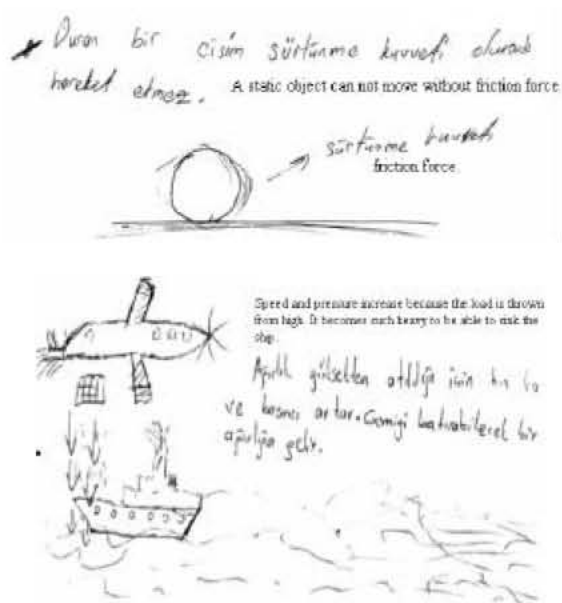 Duran bir cisim sürtünme kuvveti olmadan
hareket etmez.
A static object can not move without friction force
sürtünme kuvveti
friction force
Speed and pressure increase because the load is thrown
from high. It becomes such heavy to be able to sink the
ship.
Ağırlık yüksekten atıldığı için hız
ve basınç artar. Gemiyi batırabilecek bir
ağırlığa gelir.